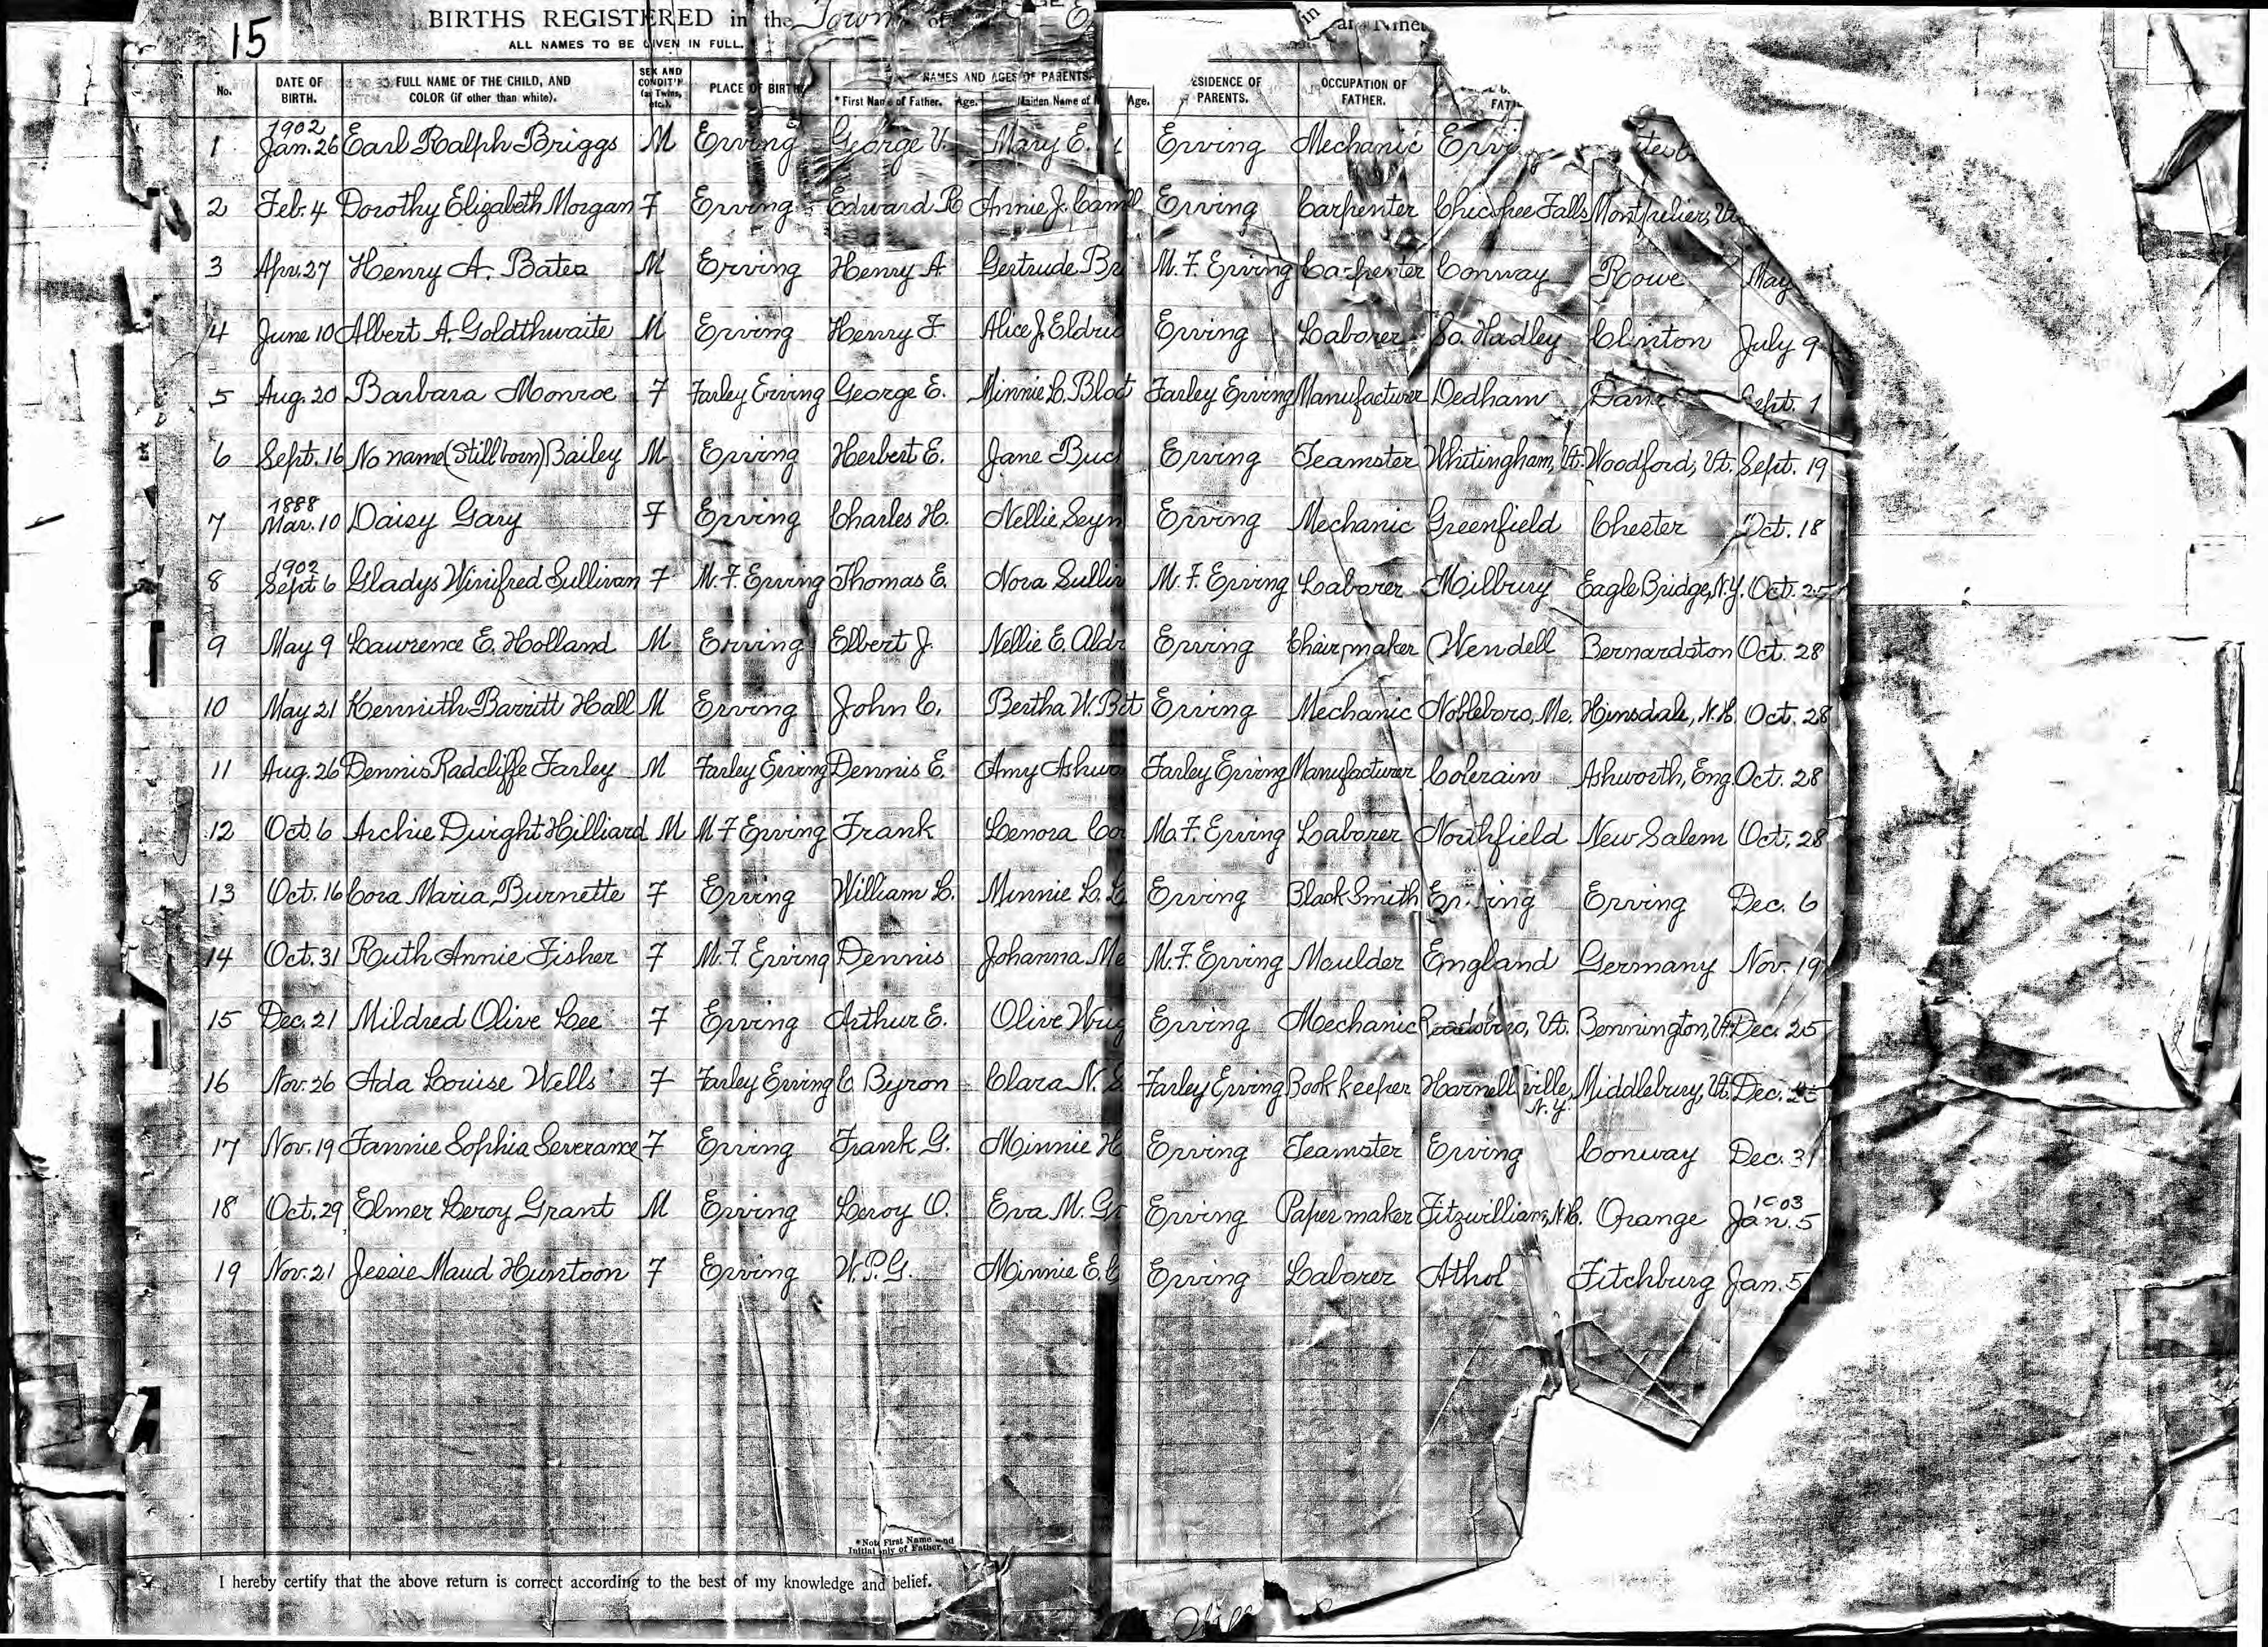 15
BIRTHS REGISTERED in the Town of
ALL NAMES TO BE GIVEN IN FULL.
No. DATE OF BIRTH. FULL NAME OF THE CHILD, AND COLOR (if other than white). SEX AND CONDIT'N (as Twins, etc.). PLACE OF BIRTH NAMES AND AGES OF PARENTS *First Name of Father. Age. Maiden Name of Age. ESIDENCE OF PARENTS. OCCUPATION OF FATHER.
1 1902 Jan. 26 Earl Ralph Briggs M Erving George V. Mary E. Erving Mechanic
2 Feb. 4 Dorothy Elizabeth Morgan F Erving Edward R Annie J. Erving Carpenter Chicopee Falls Montpelier, Vt
3 Apr. 27 Henry A. Bates M Erving Henry A Gertrude M. F. Erving Carpenter Conway Rowe May
4 June 10 Albert A. Goldthwaite M Erving Henry F. Alice J. Erving Laborer So. Hadley Clinton July 9
5 Aug. 20 Barbara Monroe F Farley Erving George E. Minnie C. Farley Erving Manufacturer Dedham Sept. 1
6 Sept. 16 No name (Stillborn) Bailey M Erving Herbert E. Jane Erving Teamster Whitingham, Vt. Woodford, Vt. Sept. 19
7 1888 Mar. 10 Daisy Gary F Erving Charles H. Nellie Erving Mechanic Greenfield Chester Oct. 18
8 1902 Sept 6 Gladys Winifred Sullivan F M. F. Erving Thomas E. Nora M. F. Erving Laborer Milbury Eagle Bridge, N.Y. Oct. 25
9 May 9 Lawrence E. Holland M Erving Elbert J. Nellie E. Erving Chairmaker Wendell Bernardston Oct. 28
10 May 21 Kennith Barritt Hall M Erving John C. Bertha W. Erving Mechanic Nobleboro, Me. Hinsdale, N.H. Oct. 28
11 Aug. 26 Dennis Radcliffe Farley M Farley Erving Dennis E. Amy Farley Erving Manufacturer Colerain Ashworth, Eng. Oct. 28
12 Oct. 6 Archie Dwight Hilliard M M F Erving Frank Lenora M. F. Erving Laborer Northfield New Salem Oct. 28
13 Oct. 16 Cora Maria Burnette F Erving William L. Minnie L. Erving Black Smith Erving Erving Dec. 6
14 Oct. 31 Ruth Annie Fisher F M. F. Erving Dennis Johanna M. F. Erving Moulder England Germany Nov. 19
15 Dec. 21 Mildred Olive Lee F Erving Arthur E. Olive Erving Mechanic Readsboro, Vt. Bennington, Vt. Dec. 25
16 Nov. 26 Ada Louise Wells F Farley Erving C. Byron Clara N. Farley Erving Book keeper Hornellville, N.Y. Middlebury, Vt. Dec. 25
17 Nov. 19 Fannie Sophia Severance F Erving Frank G. Minnie Erving Teamster Erving Conway Dec. 31
18 Oct. 29 Elmer Leroy Grant M Erving Leroy O. Eva M. Erving Paper maker Fitzwilliam, N.H. Orange 1903 Jan. 5
19 Nov. 21 Jessie Maud Huntoon F Erving W. P. G. Minnie E. Erving Laborer Athol Fitchburg Jan. 5
*Note First Name and Initial only of Father.
I hereby certify that the above return is correct according to the best of my knowledge and belief.